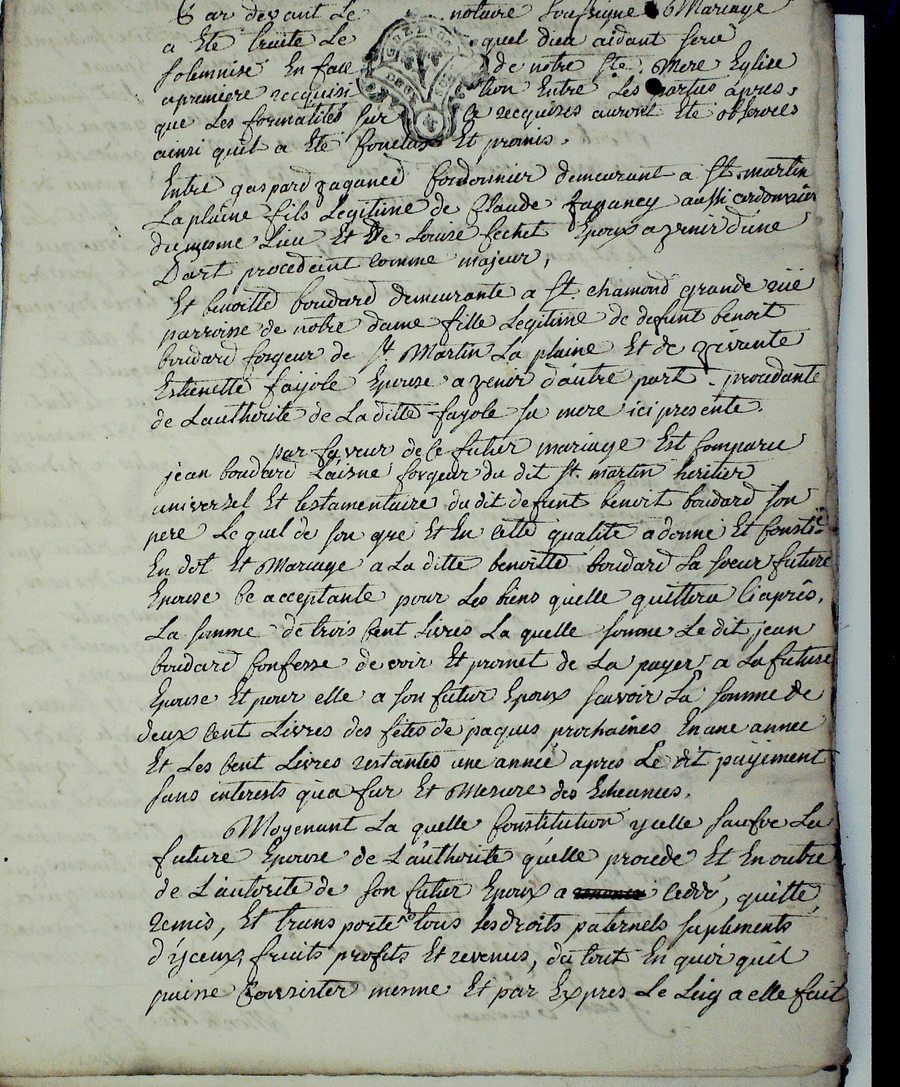 Par devant Le notaire soussigne Mariage
a Ete traite Le quel dieu aidant sera
solemnisé En face de notre Ste. Mere Eglise
a premiere recquisi tion Entre Les parties apres
que Les formalités sur ce recquises auront Ete observées
ainsi quil a Eté Et promis.
Entre gaspard Zaganeÿ Cordonnier demeurant a St. martin
La plaine fils Legitime de Claude Zaganey aussi cordonnier
du mesme Lieu Et de Louise fechet Epoux a venir d'une
Part procedant comme majeur,
Et benoitte boudard demeurante a St. chamond grande rüe
parroisse de notre dame fille Legitime de defunt benoit
boudard forgeur de St. Martin La plaine Et de vivante
Estienette fajole Epouse a venir d'autre part. procedante
de Lauthorite de La ditte fajole sa mere ici presente.
par faveur de Ce futur mariage Est Comparu
jean boudard L'aisné forgeur du dit St. martin heritier
universel Et testamentaire du dit defunt benoit boudard son
pere Le quel de son gré Et En cette qualité a donné Et Constié
En dot Et Mariage a La ditte benoitte boudard sa soeur future
Epouse Ce acceptante pour Les biens quelle quittera Ci après,
La somme de trois Cent Livres La quelle somme Le dit jean
boudard Confesse devoir Et promet de La payer a La future
Epouse Et pour elle a son futur Epoux scavoir La somme de
deux Cent Livres des fêtes de paques prochaines En une année
Et Les Cent Livres restantes une année apres Le dit payement
sans interests qu'a fur Et Mesure des Echeances.
Moyenant La quelle Constitution ycelle saufve La
future Epouse de L'authorite quelle procede Et En outre
de L'autorité de son futur Epoux a cedé, quitté,
remis, Et transporté tous ses droits paternels suplements
d'yceux, fruits profits Et revenus, du tout En quoi quil
puisse Consister mesme Et par Exprès Le Leig a elle fait